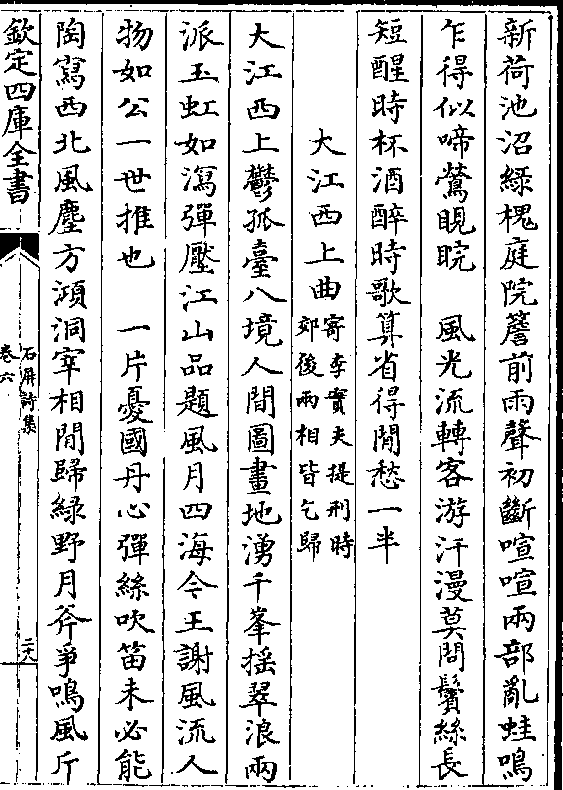 新荷池沼綠槐庭院簷前雨聲初斷喧喧兩部亂蛙鳴
乍得似啼鶯睍睆　風光流轉客游汗漫莫問鬢絲長
短醒時杯酒醉時歌算省得閒愁一半
大江西上曲寄李實夫提刑時
郊後兩相皆乞歸
大江西上鬱孤臺八境人間圖畫地湧千峯揺翠浪兩
派玉虹如瀉彈壓江山品題風月四海今王謝風流人
物如公一世推也　一片憂國丹心彈絲吹笛未必能
陶寫西北風塵方澒洞宰相閒歸綠野月斧爭鳴風斤
欽定四庫全書
石屏詩集
卷六
二六